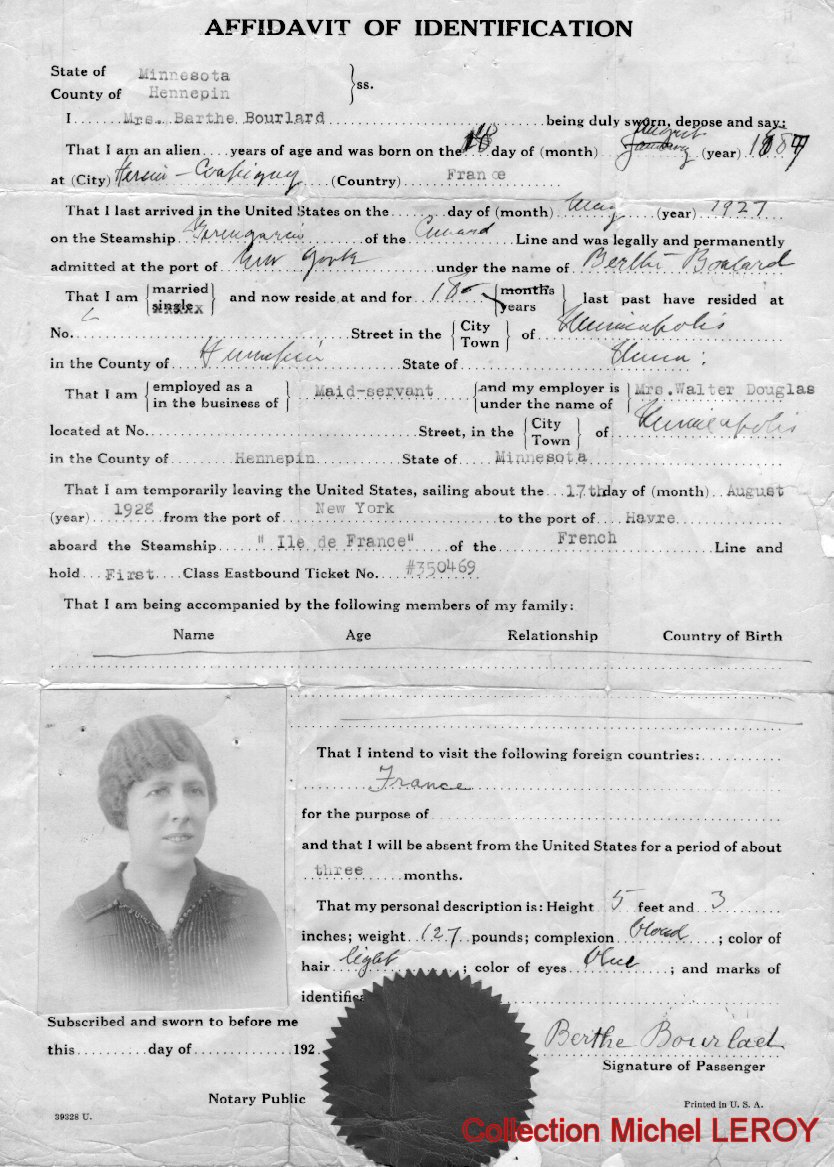 AFFIDAVIT OF IDENTIFICATION
State of Minnesota
County of Hennepin } ss.
I Mrs. Barthe Bourlard being duly sworn, depose and say:
That I am an alien years of age and was born on the 18 day of (month) August January (year) 1887
at (City) Hersin - Coupigny (Country) France
That I last arrived in the United States on the day of (month) May (year) 1927
on the Steamship Berengaria of the Cunard Line and was legally and permanently
admitted at the port of New York under the name of Berthe Boulard
That I am { married single } and now reside at and for 18 { months years } last past have resided at
No. Street in the { City Town } of Minneapolis
in the County of Hennepin State of Minn.
That I am { employed as a in the business of } Maid-servant { and my employer is under the name of } Mrs. Walter Douglas
located at No. Street, in the { City Town } of Minneapolis
in the County of Hennepin State of Minnesota
That I am temporarily leaving the United States, sailing about the 17th day of (month) August
(year) 1928 from the port of New York to the port of Havre
aboard the Steamship "Ile de France" of the French Line and
hold First Class Eastbound Ticket No. #350469
That I am being accompanied by the following members of my family:
Name Age Relationship Country of Birth
That I intend to visit the following foreign countries:
France
for the purpose of
and that I will be absent from the United States for a period of about
three months.
That my personal description is: Height 5 feet and 3
inches; weight 127 pounds; complexion blond; color of
hair light; color of eyes blue; and marks of
identifica
Subscribed and sworn to before me
this day of 192
Berthe Bourlad
Signature of Passenger
Notary Public
39328 U.
Printed in U. S. A.
Collection Michel LEROY